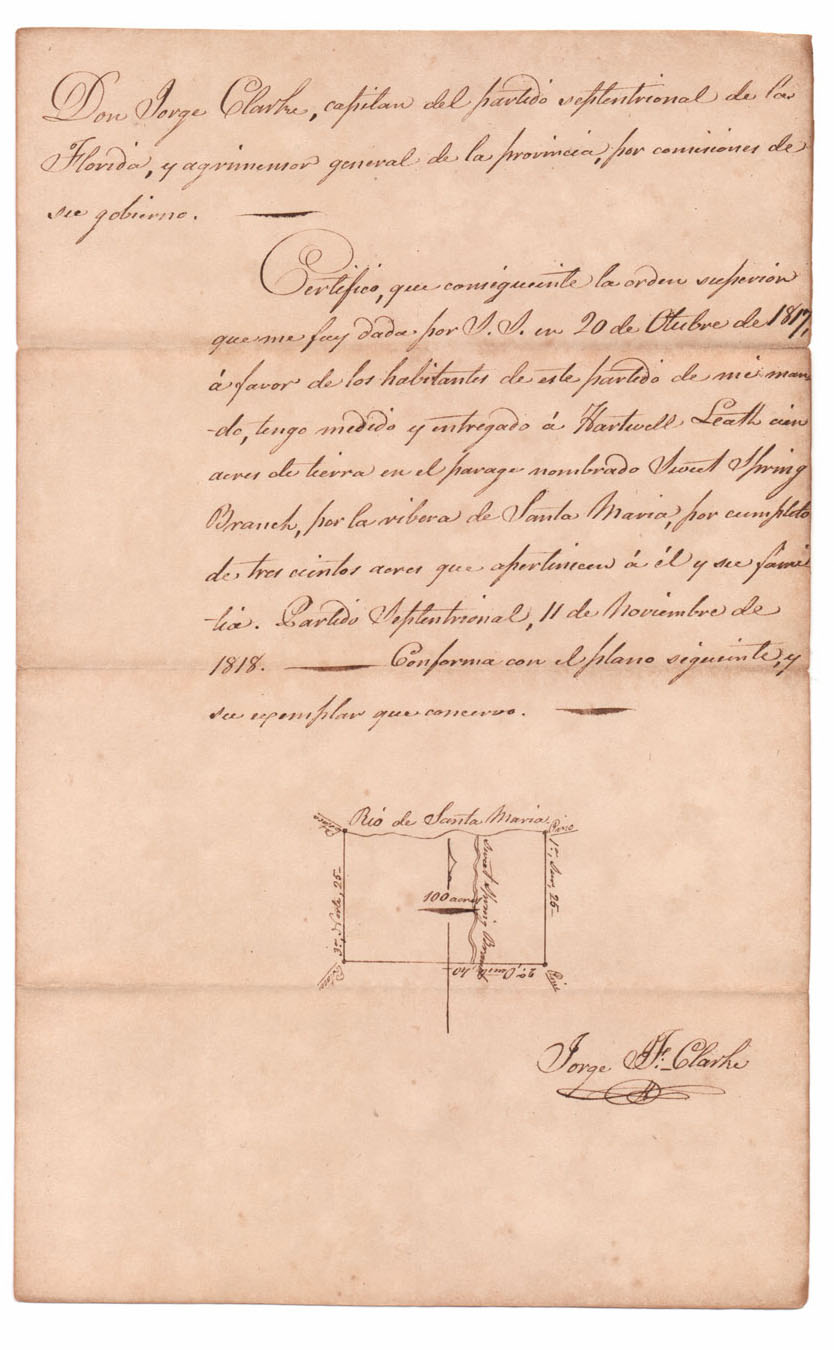 Don Jorge Clarke, capitan del partido septentrional de la
Florida, y agrimensor general de la provincia, por comisiones de
su gobierno.
Certifico, que consigueinte la orden superior
que me fuy dada por S. S. en 20 de Otubre de 1817,
á favor de los habitantes de este partido de mi man-
-do, tengo medido y entregado á Hartwell Leath cien
acres de tierra en el parage nombrado Sweet Spring
Branch, por la ribera de Santa Maria, por cumpleto
de tres cientos acres que apertinicen á él y su fami
-lia. Partido Septentrional, 11 de Noviembre de
1818. Conforma con el plano sigueinte, y
su exemplar que concervo.
Rio de Santa Maria
Pino
1º, Sur, 25-
Sweet Spring Branch
100 acres
3º, Norte, 25-
2º, Oueste, 40-
Jorge J. F. Clarke